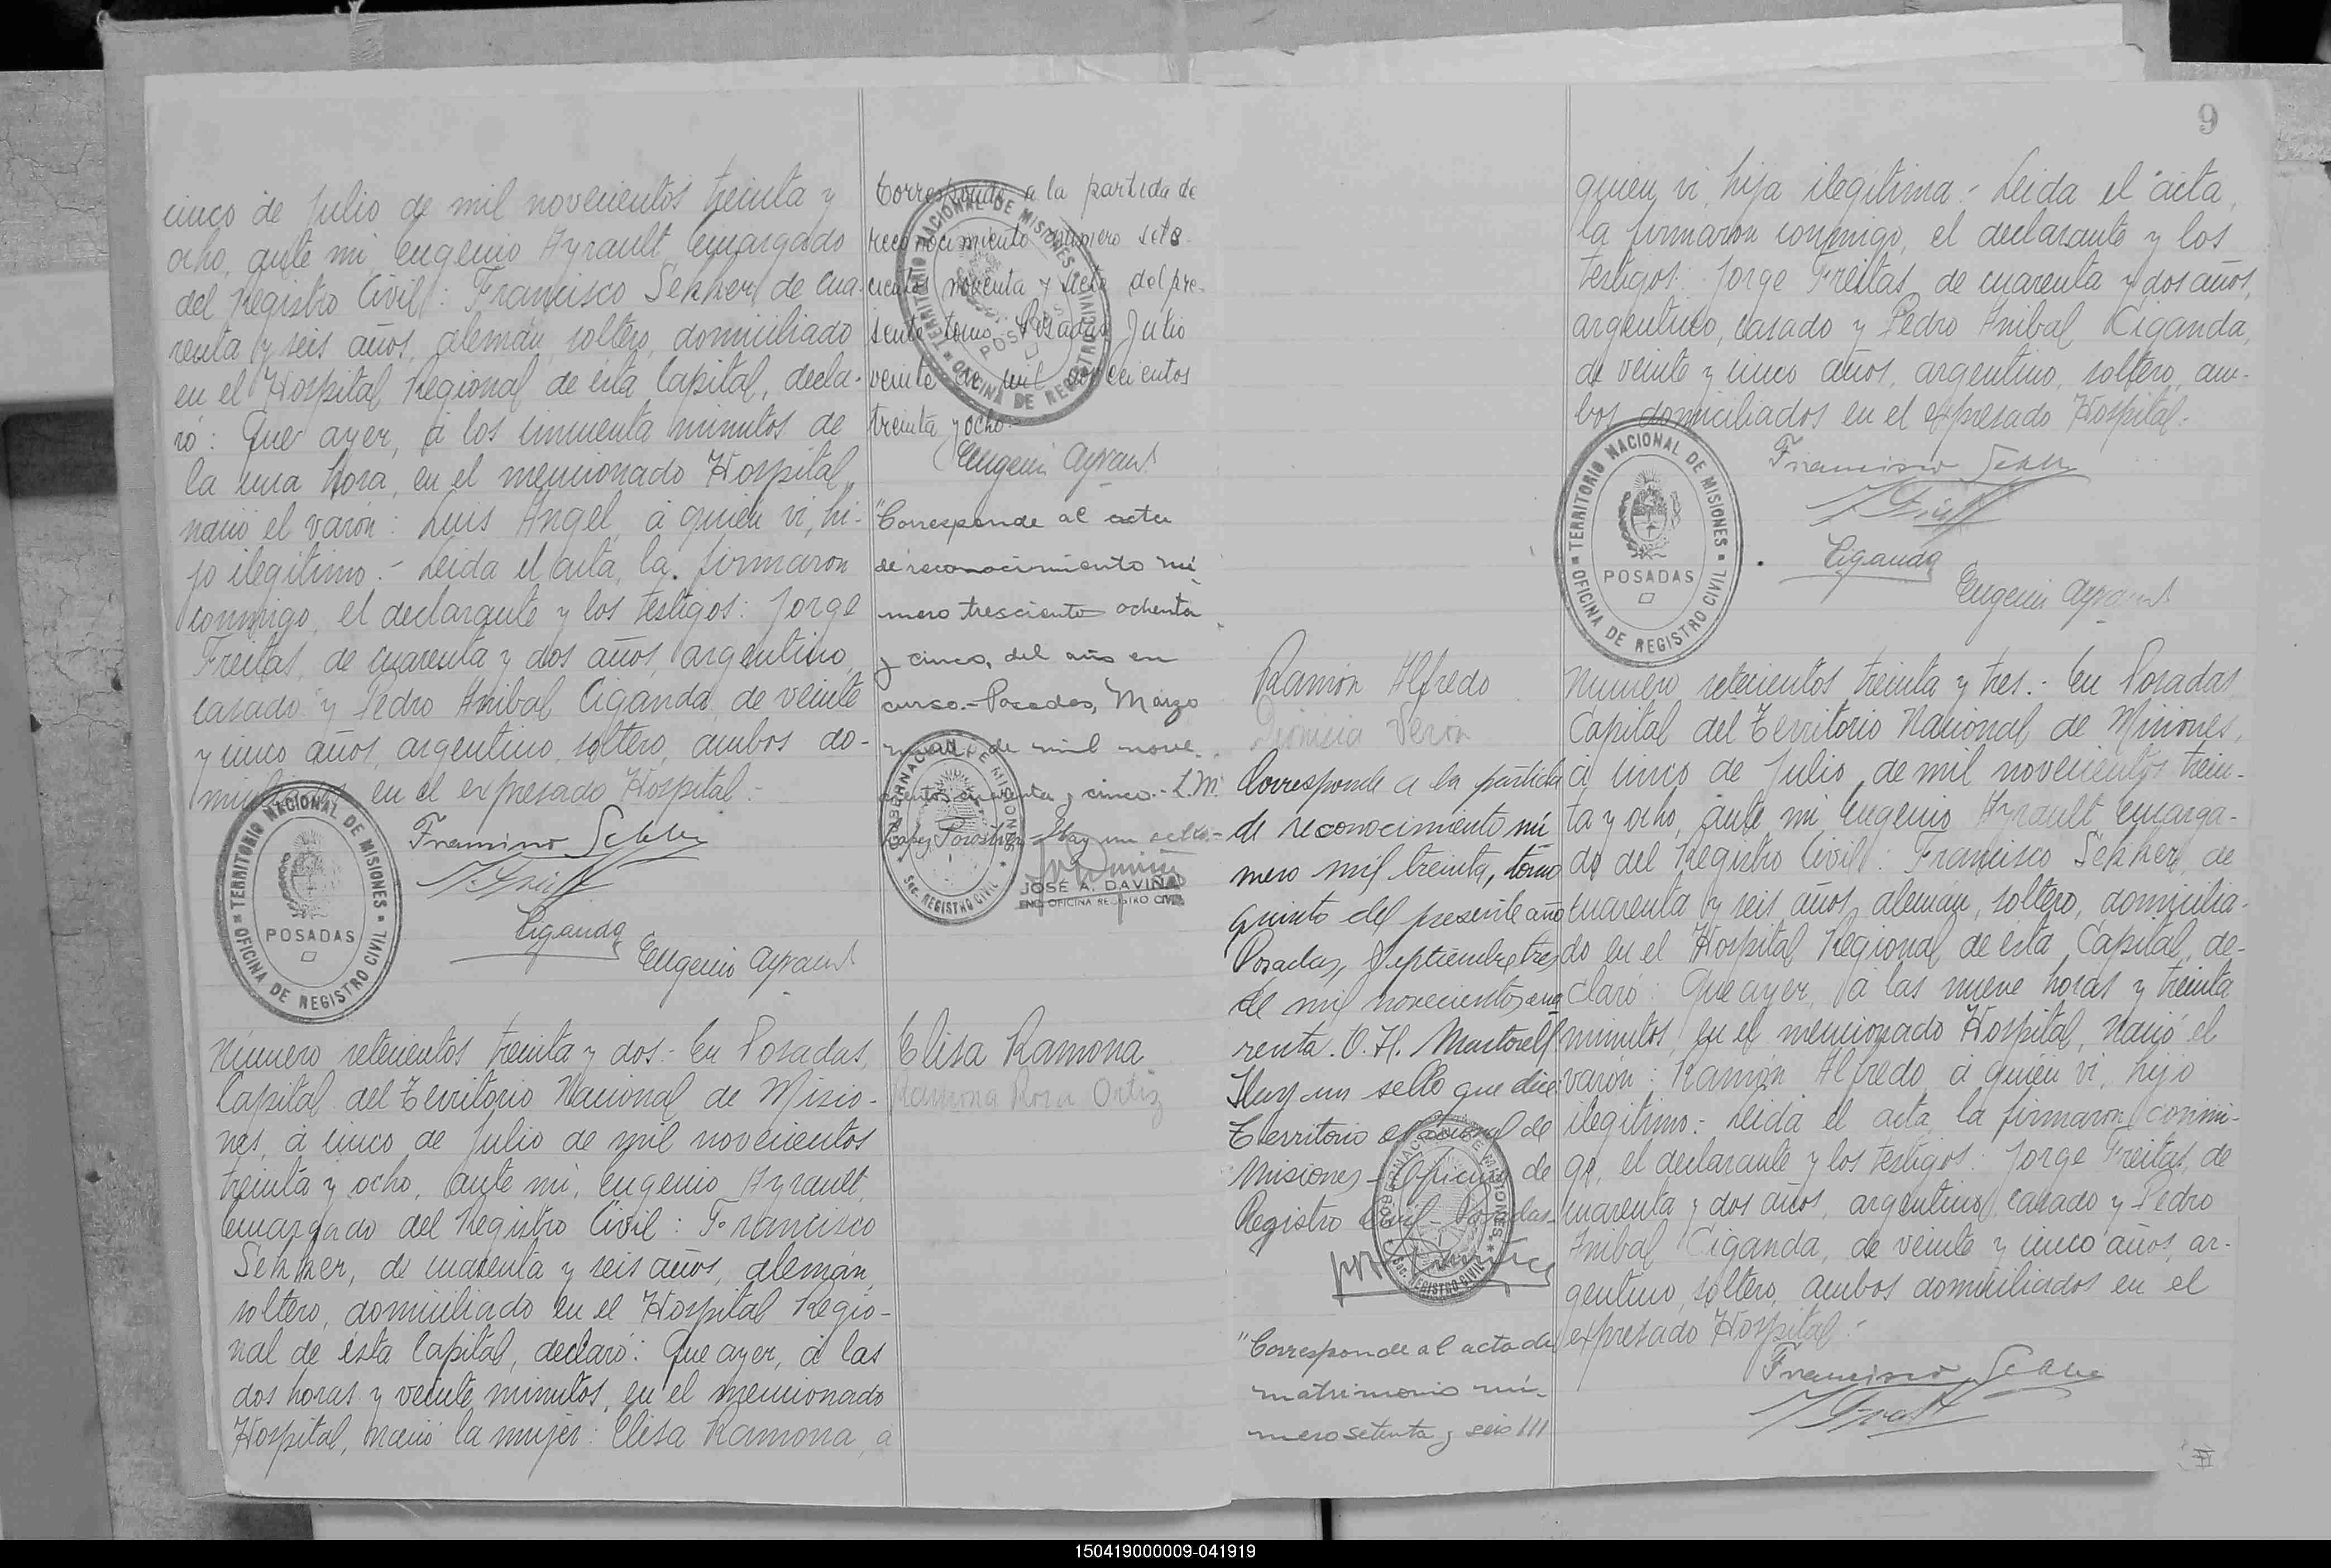 cinco de Julio de mil novecientos treinta y
ocho, ante mi, Eugenio Ayrault, Encargado
del Registro Civil: Francisco Sekker, de cua-
renta y seis años, alemán, soltero, domiciliado
en el Hospital Regional de ésta Capital, decla-
ró: Que ayer, á los cincuenta minutos de
la una hora, en el mencionado Hospital,
nació el varón: Luis Angel, á quién vi, hi-
jo ilegítimo.- Leida el acta, la firmaron
conmigo, el declarante y los testigos: Jorge
Freitas, de cuarenta y dos años, argentino,
casado y Pedro Anibal Ciganda, de veinte
y cinco años, argentino, soltero, ambos do-
miciliados en el expresado Hospital.-
Francisco Sekker
J. Freitas
Ciganda
Eugenio Ayrault
TERRITORIO NACIONAL DE MISIONES
POSADAS
OFICINA DE REGISTRO CIVIL
Número setecientos treinta y dos.- En Posadas,
Capital del Territorio Nacional de Misio-
nes, á cinco de Julio de mil novecientos
treinta y ocho, ante mi, Eugenio Ayrault,
Encargado del Registro Civil: Francisco
Sekker, de cuarenta y seis años, alemán,
soltero, domiciliado en el Hospital Regio-
nal de ésta Capital, declaró: Que ayer, á las
dos horas y veinte minutos, en el mencionado
Hospital, nació la mujer: Elisa Ramona, á
Corresponde a la partida de
reconocimiento número sete
cientos noventa y siete del pre-
sente tomo. Posadas Julio
veinte de mil novecientos
treinta y ocho.-
Eugenio Ayrault
TERRITORIO NACIONAL DE MISIONES
POSADAS
OFICINA DE REGISTRO CIVIL
"Corresponde al acta
de reconocimiento nú-
mero trescientos ochenta
y cinco, del año en
curso.- Posadas, Marzo
de mil nove-
cientos cuarenta y cinco.- L.M.
López Hay un sello.-
JOSÉ A. DAVIÑA
ENC. OFICINA REGISTRO CIVIL
GOBERNACION DE MISIONES
Sec. REGISTRO CIVIL
Elisa Ramona
Ramona Rosa Ortiz
9
quién vi, hija ilegítima.- Leida el acta,
la firmaron conmigo, el declarante y los
testigos: Jorge Freitas, de cuarenta y dos años,
argentino, casado y Pedro Anibal Ciganda,
de veinte y cinco años, argentino, soltero, am-
bos domiciliados en el expresado Hospital.-
Francisco Sekker
J. Freitas
Ciganda
Eugenio Ayrault
TERRITORIO NACIONAL DE MISIONES
POSADAS
OFICINA DE REGISTRO CIVIL
Ramón Alfredo
Dionicia Verón
Corresponde a la partida
de reconocimiento nú
mero mil treinta, tomo
quinto del presente año
Posadas, Septiembre tres
de mil novecientos cua
renta. O. H. Martorell.
Hay un sello que dice:
Territorio Nacional de
Misiones - Oficina de
Registro Civil - Posadas-
GOBERNACION DE MISIONES
Sec. REGISTRO CIVIL
"Corresponde al acta de
matrimonio nú-
mero setenta y seis ///
Número setecientos treinta y tres.- En Posadas,
Capital del Territorio Nacional de Misiones,
á cinco de Julio de mil novecientos trein-
ta y ocho, ante mi, Eugenio Ayrault, Encarga-
do del Registro Civil: Francisco Sekker, de
cuarenta y seis años, alemán, soltero, domicilia-
do en el Hospital Regional de ésta Capital, de-
claró: Que ayer, á las nueve horas y treinta
minutos, en el mencionado Hospital, nació el
varón: Ramón Alfredo, á quién vi, hijo
ilegítimo.- Leida el acta, la firmaron conmi-
go, el declarante y los testigos: Jorge Freitas, de
cuarenta y dos años, argentino, casado y Pedro
Anibal Ciganda, de veinte y cinco años, ar-
gentino, soltero, ambos domiciliados en el
expresado Hospital.-
Francisco Sekker
J. Freitas
150419000009-041919